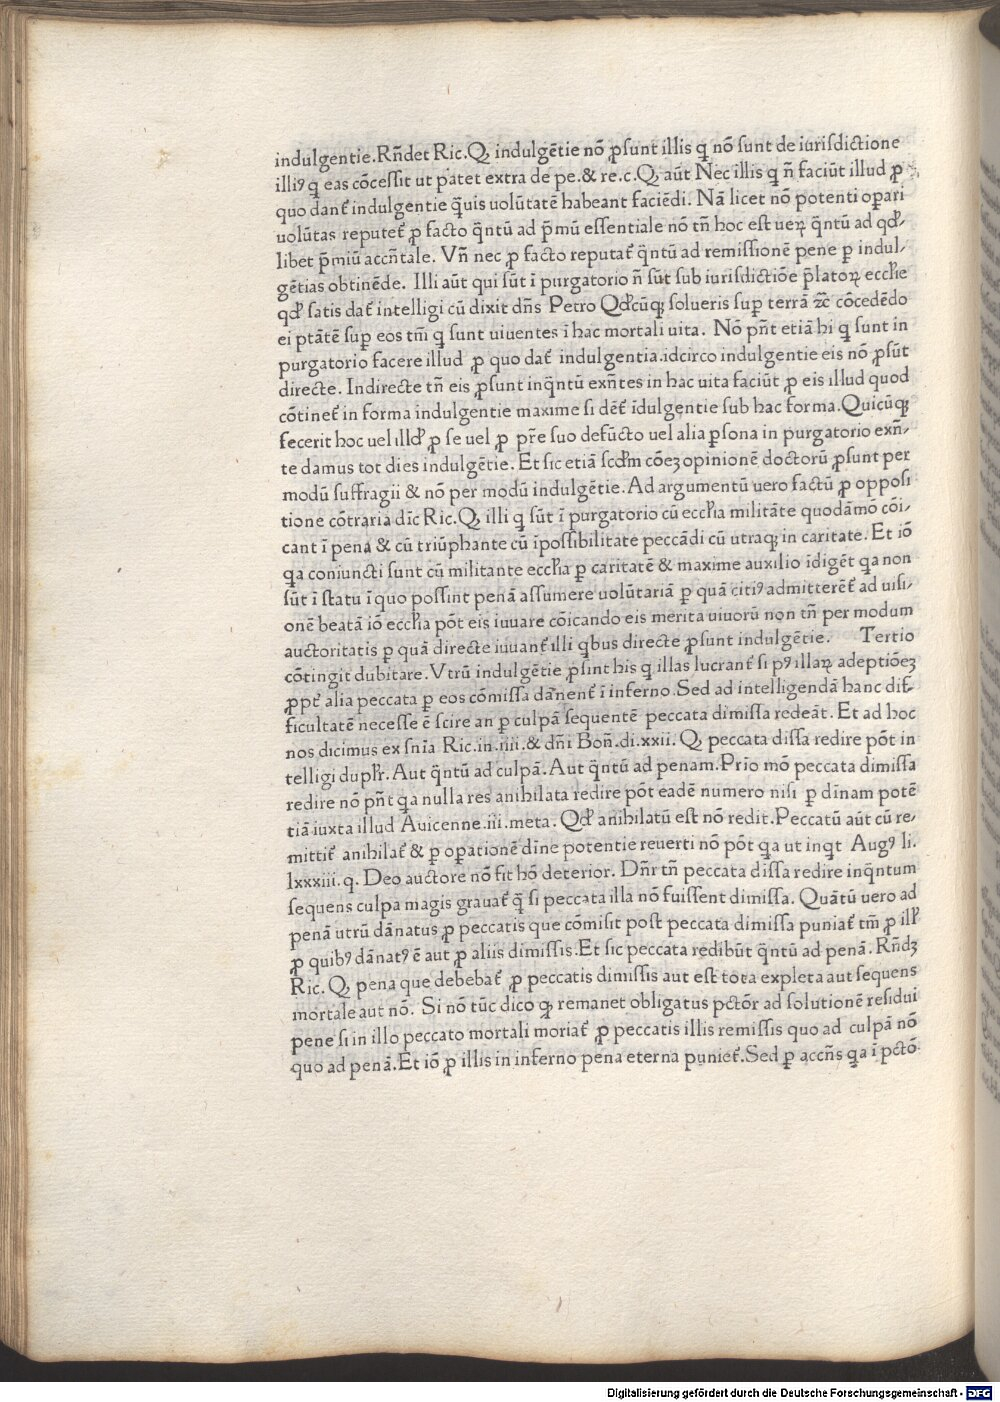 indulgentie.Rñdet Ric.Q̨ indulgētie nō ꝓsunt illis q̄ nō sunt de iurisdictione
illiꝰ q̄ eas cōcessit ut patet extra de pe.& re.c.Q̨ aūt Nec illis q̄ ñ faciūt illud ꝓ
quo dant᷑ indulgentie q̄uis uolūtatē habeant faciēdi. Nā licet nō potenti oꝑari
uolūtas reputet᷑ ꝓ facto q̄ntū ad p̄mū essentiale nō tñ hoc est ueꝝ q̄ntū ad qđ⸗
libet p̄miū accñtale. Vñ nec ꝓ facto reputat᷑ q̄ntū ad remissionē pene ꝑ indul⸗
gētias obtinēde. Illi aūt qui sūt ī purgatorio ñ sūt sub iurisdictiōe p̄latoꝝ eccl̄ie
qđ satis dat᷑ intelligi cū dixit dñs Petro Qđcūqꝫ solueris suꝑ terrā ⁊c̄ cōcedēdo
ei ptātē suꝑ eos tm̄ q̄ sunt uiuentes ī hac mortali uita. Nō pñt etiā hi q̄ sunt in
purgatorio facere illud ꝓ quo dat᷑ indulgentia.idcirco indulgentie eis nō ꝓsūt
directe. Indirecte tñ eis ꝓsunt inq̄ntū exñtes in hac uita faciūt ꝓ eis illud quod
cōtinet᷑ in forma indulgentie maxime si dēt᷑ īdulgentie sub hac forma.Quicūqꝫ
fecerit hoc uel illđ ꝓ se uel ꝓ pr̄e suo defūcto uel alia ꝑsona in purgatorio exñ⸗
te damus tot dies indulgētie. Et sic etiā scđm cōeꝫ opinionē doctorū ꝓsunt per
modū suffragii & nō per modū indulgētie. Ad argumentū uero factū ꝓ opposi
tione cōtraria dīc Ric.Q̨ illi q̄ sūt ī purgatorio cū eccl̄ia militāte quodāmō cōi⸗
cant ī pena & cū triūphante cū īpossibilitate peccādi cū utraqꝫ in caritate. Et iō
q̨a coniuncti sunt cū militante eccl̄ia ꝑ caritatē & maxime auxilio īdigēt q̨a non
sūt ī statu ī quo possint penā assumere uolūtariā ꝑ quā citiꝰ admitterēt᷑ ad uisi⸗
onē beatā iō eccl̄ia pōt eis iuuare cōicando eis merita uiuorū non tñ per modum
auctoritatis ꝑ quā directe iuuant᷑ illi q̄bus directe ꝓsunt indulgētie. Tertio
cōtingit dubitare. Vtrū indulgētie ꝓsint his q̄ illas lucrant᷑ si pꝰ illaꝝ adeptiōeꝫ
ꝓpt᷑ alia peccata ꝑ eos cōmissa dānent᷑ ī inferno. Sed ad intelligendā hanc dif⸗
ficultatē necesse ē scire an ꝑ culpā sequentē peccata dimissa redeāt. Et ad hoc
nos dicimus ex sñia Ric.in.iiii.& dñi Boñ.di.xxii. Q̨ peccata dissa redire pōt in
telligi duplr̄. Aut q̄ntū ad culpā. Aut q̄ntū ad penam. Prio mō peccata dimissa
redire nō pñt q̨a nulla res anihilata redire pōt eadē numero nisi ꝑ dīnam potē
tiā iuxta illud Auicenne.iii.meta. Qđ anihilatū est nō redit. Peccatū aūt cū re⸗
mittit᷑ anihilat᷑ & ꝑ oꝑationē dīne potentie reuerti nō pōt q̨a ut inqt Augꝰ li.
lxxxiii.q. Deo auctore nō fit hō deterior. Dñr tñ peccata dissa redire inq̄ntum
sequens culpa magis grauat᷑ q̄ si peccata illa nō fuissent dimissa. Quātū uero ad
penā utrū dānatus ꝓ peccatis que cōmisit post peccata dimissa puniat᷑ tm̄ ꝓ ill̄
ꝓ quibꝰ dānatꝰ ē aut ꝓ aliis dimissis. Et sic peccata redibūt q̄ntū ad penā. Rñdꝫ
Ric. Q̨ pena que debebat᷑ ꝓ peccatis dimissis aut est tota expleta aut sequens
mortale aut nō. Si nō tūc dico qꝫ remanet obligatus pctōr ad solutionē residui
pene si in illo peccato mortali moriat᷑ ꝓ peccatis illis remissis quo ad culpā nō
quo ad penā. Et iō ꝓ illis in inferno pena eterna puniet᷑. Sed ꝑ accñs q̨a ī pctō
Digitalisierung gefördert durch die Deutsche Forschungsgemeinschaft - DFG